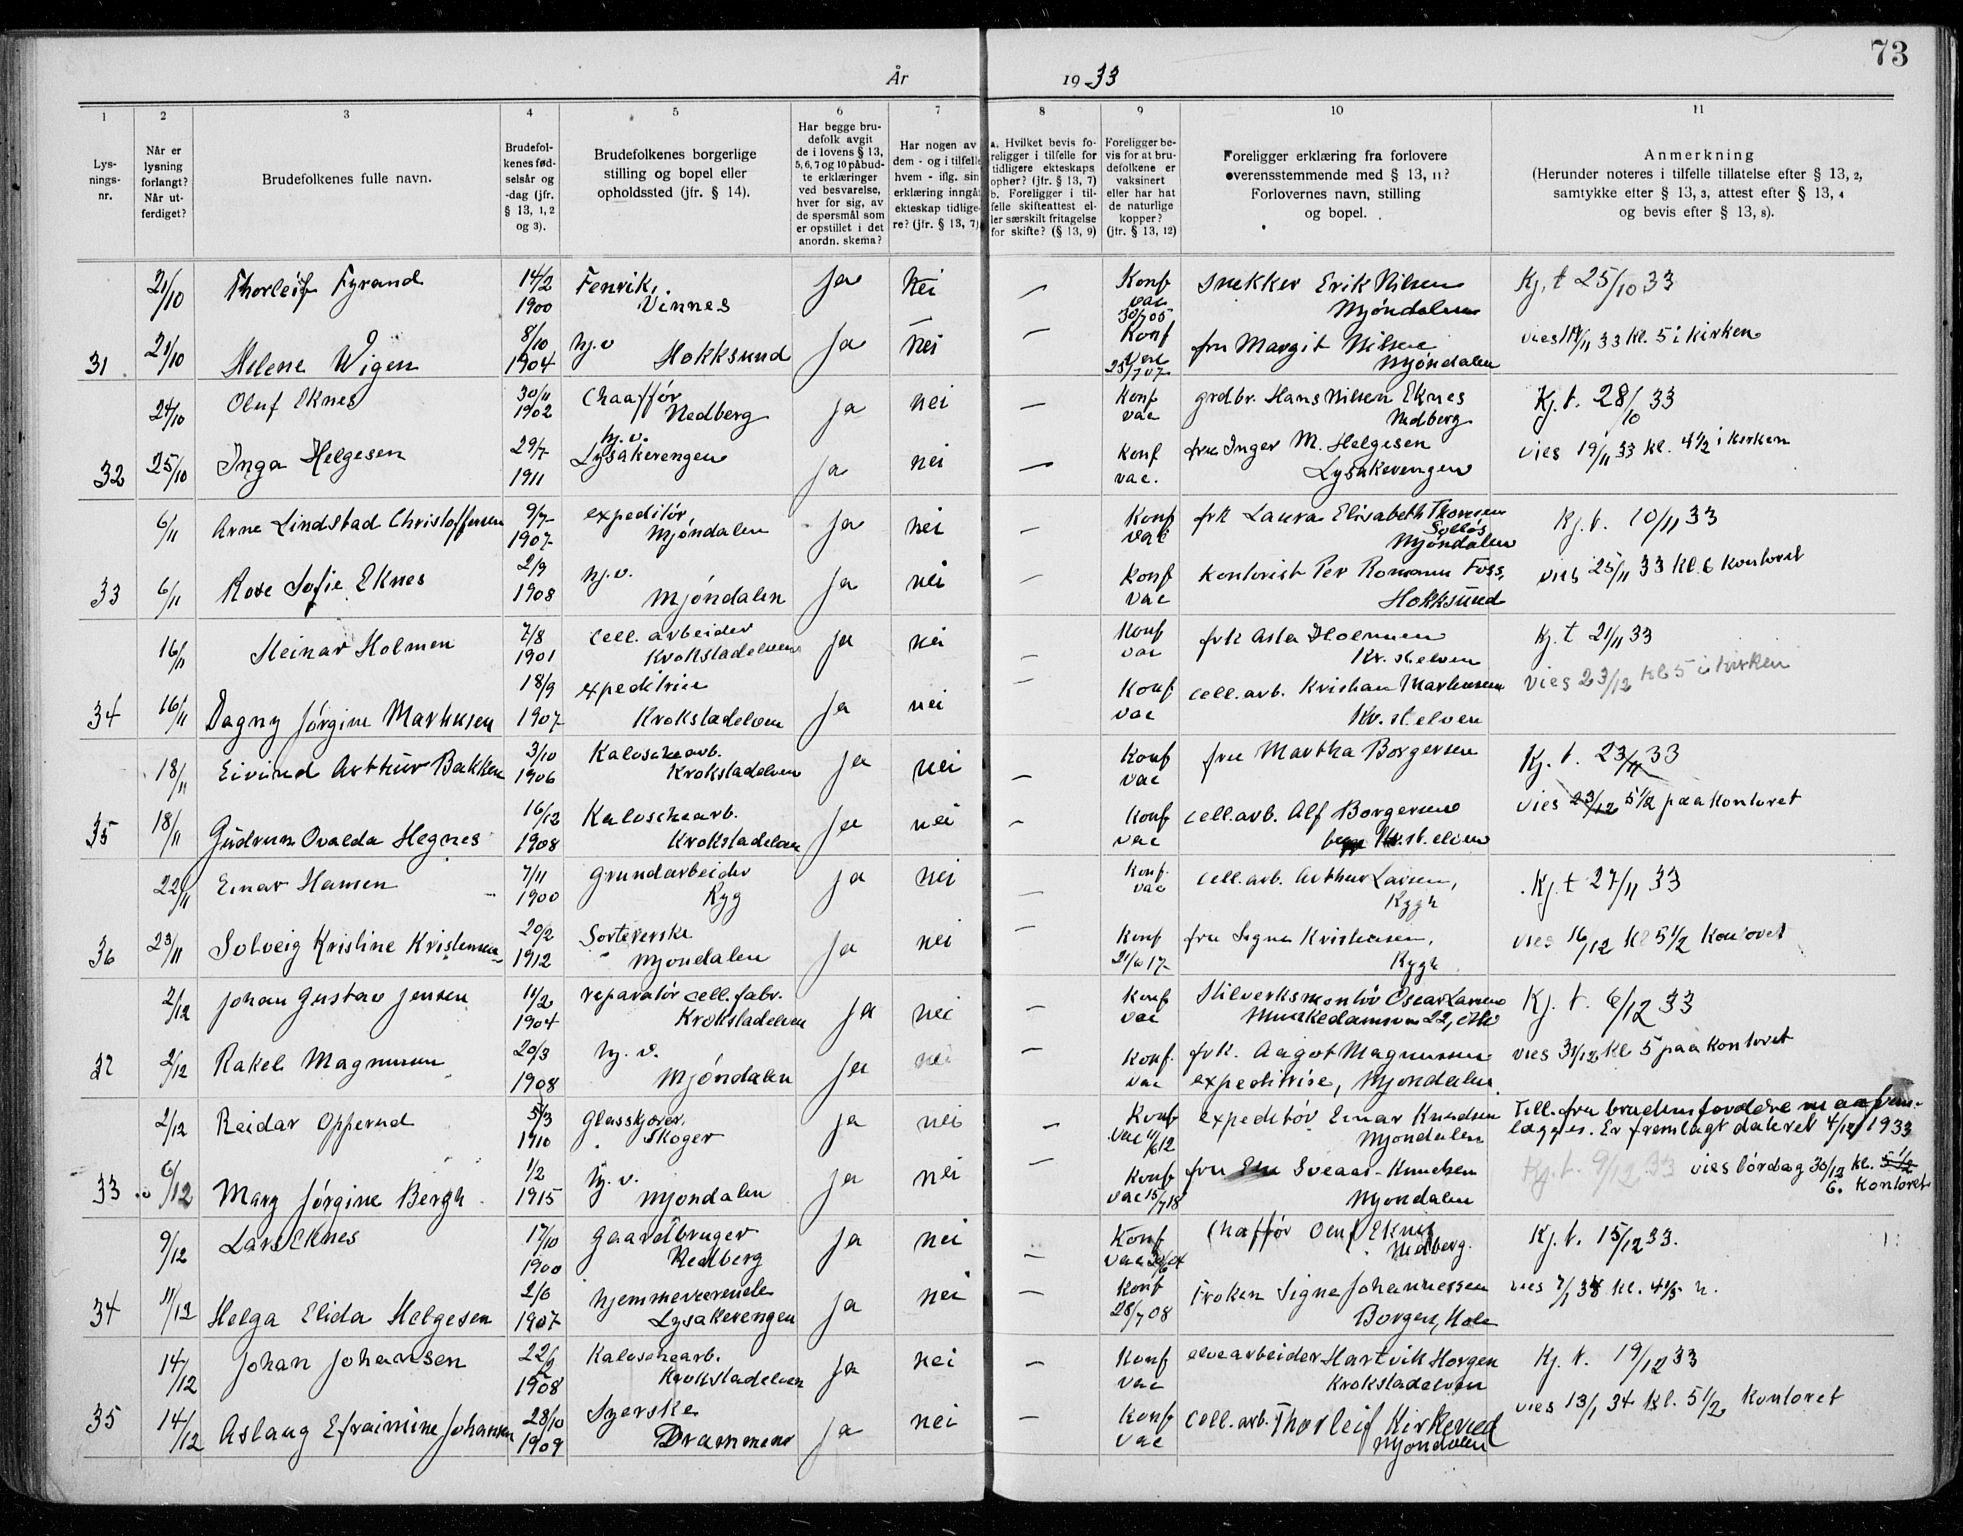 73
År 1933
1 2 3 4 5 6 7 8 9 10 11
Lys-
nings-
nr.
Når er
lysning
forlangt?
Når ut-
ferdiget?
Brudefolkenes fulle navn.
Brudefol-
kenes fød-
selsår og
-dag (jfr.
§ 13, 1, 2
og 3).
Brudefolkenes borgerlige
stilling og bopel eller
opholdssted (jfr. § 14).
Har begge bru-
defolk avgit
de i lovens § 13,
5, 6, 7 og 10 påbud-
te erklæringer
ved besvarelse,
hver for sig, av
de spørsmål som
er opstillet i det
anordn. skema?
Har nogen av
dem - og i tilfelle
hvem - iflg. sin
erklæring inngåt
ekteskap tidlige-
re? (jfr. § 13, 7)
a. Hvilket bevis fo-
religger i tilfelle for
tidligere ekteskaps
ophør? (jfr. § 13, 7)
b. Foreligger i til-
felle skifteattest el-
ler særskilt fritagelse
for skifte? (§ 13, 9)
Foreligger be-
vis for at bru-
defolkene er
vaksinert
eller har hat
de naturlige
kopper?
(jfr. § 13, 12)
Foreligger erklæring fra forlovere
overensstemmende med § 13, 11?
Forlovernes navn, stilling
og bopel.
Anmerkning
(Herunder noteres i tilfelle tillatelse efter § 13, 2,
samtykke efter § 13, 3, attest efter § 13, 4
og bevis efter § 13, 8).
21/10 Thorleif Fyrand 14/2 1900 Fenrik, Vinnes ja nei — Konf vac 30/7 05 Snekker Erik Nilsen Mjøndalen Kj. t 25/10 33
31 21/10 Helene Wigen 8/10 1904 hj.v Hokksund ja nei — Konf vac 25/7 07 fru Margit Nilsen Mjøndalen vies 11/11 33 kl. 5 i kirken
24/10 Oluf Eknes 30/11 1902 Chaaffør Nedberg ja nei — Konf vac grdbr. Hans Nilsen Eknes Nedberg Kj. t. 28/10 33
32 25/10 Inga Helgesen 29/7 1911 hj.v. Lysakerengen ja nei — Konf vac. fru Inger M. Helgesen Lysakerengen vies 19/11 33 kl. 4 1/2 i kirken
6/11 Arne Lindstad Christoffersen 9/7 1907 expeditør Mjøndalen ja nei — Konf vac frk Laura Elisabeth Thoresen Mjøndalen Kj. t. 10/11 33
33 6/11 Rose Sofie Eknes 2/9 1908 hj.v. Mjøndalen ja nei — Konf vac Kontorist Per Romann Foss, Hokksund vies 25/11 33 kl. 6 kontoret
16/11 Steinar Holmen 7/8 1901 cell. arbeider Krokstadelven ja nei — Konf vac frk Asta Holmen Kr. stelven Kj. t 21/11 33
34 16/11 Dagny Jørgine Markusen 18/9 1907 expeditrise Krokstadelven ja nei — Konf vac cell. arb. Kristian Markusen Kr. st elven vies 23/12 kl 5 i kirken
18/11 Eivind Arthur Bakken 3/10 1906 Kaloschearb. Krokstadelven ja nei — Konf vac fru Martha Borgersen Kj. t. 23/11 33
35 18/11 Gudrun Ovalda Hegnes 16/12 1908 Kaloschearb. Krokstadelven ja nei — Konf vac cell. arb. Alf Borgersen Kr. st. elven vies 23/12 5 1/2 paa kontoret
22/11 Einar Hansen 7/11 1900 grundarbeider Ryg ja nei — Konf. vac cell. arb. Arthur Larsen, Rygh Kj. t 27/11 33
36 23/11 Solveig Kristine Kristensen 20/2 1912 Sorterske Mjøndalen ja nei — Konf 21/6 17 fru Signe Kristiansen, Rygh vies 16/12 kl 5 1/2 kontoret
2/12 Johan Gustav Jensen 11/2 1904 reparatør cell. fabr. Krokstadelven ja nei — Konf vac Stilverksmontør Oscar Larsen Munkedamsvn 22, Oslo Kj. t. 6/12 33
37 2/12 Rakel Magnussen 20/3 1908 hj. v. Mjøndalen ja nei — Konf. vac frk. Aagot Magnussen expeditrise, Mjøndalen vies 31/12 kl 5 paa kontoret
2/12 Reidar Opperud 5/3 1910 Glasskjører, Skoger ja nei — Konf Vac 11/6 12 expeditør Einar Knudsen Mjøndalen Till. fra brudens foreldre maa frem-
lægges. Er fremlagt datert 4/12 1933
33 6/12 Mary Jørgine Bergh 1/2 1915 hj. v. Mjøndalen ja nei — Konf vac 15/7 18 fru Sveaas-Knudsen Mjøndalen Kj. t. 9/12 33 vies lørdag 30/12 kl. 5 1/2
6. kontoret
9/12 Lars Eknes 17/10 1900 gaardbruger Nedberg ja nei — Konf Chaffør Oluf Eknes Nedberg. Kj. t. 15/12 33.
34 11/12 Helga Elida Helgesen 2/6 1907 hjemmeværende Lysakerengen ja nei — Konf 28/7 08 Frøken Signe Johannessen Borgen, Hole vies 7/1 34 kl. 4 1/2
14/12 Johan Johansen 22/9 1908 Kaloschearb. Krokstadelven ja nei — Konf vac elvearbeider Hartvik Horgen Krokstadelven Kj. t. 19/12 33
35 14/12 Aslaug Efraimine Johansen 28/10 1909 Syerske Drammen ja nei — Konf vac cell. arb. Thorleif Kirkerud Mjøndalen vies 13/1 34 kl. 5 1/2 kontoret